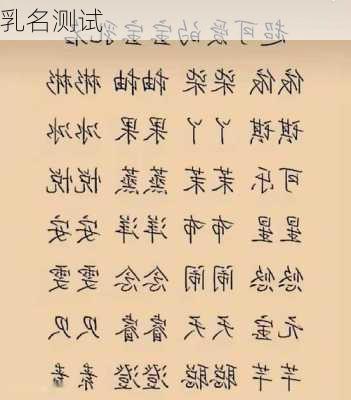 乳名测试
超可爱的宝宝乳名
柒柒 铀铀 彬彬
琪琪 丫丫 果果 冰冰
可乐 茉茉 悦悦
布布 洋洋 安安
悠悠 闹闹 念念 雯雯
元宝 天天 睿睿 贝贝
芊芊 聪聪 澄澄 素素